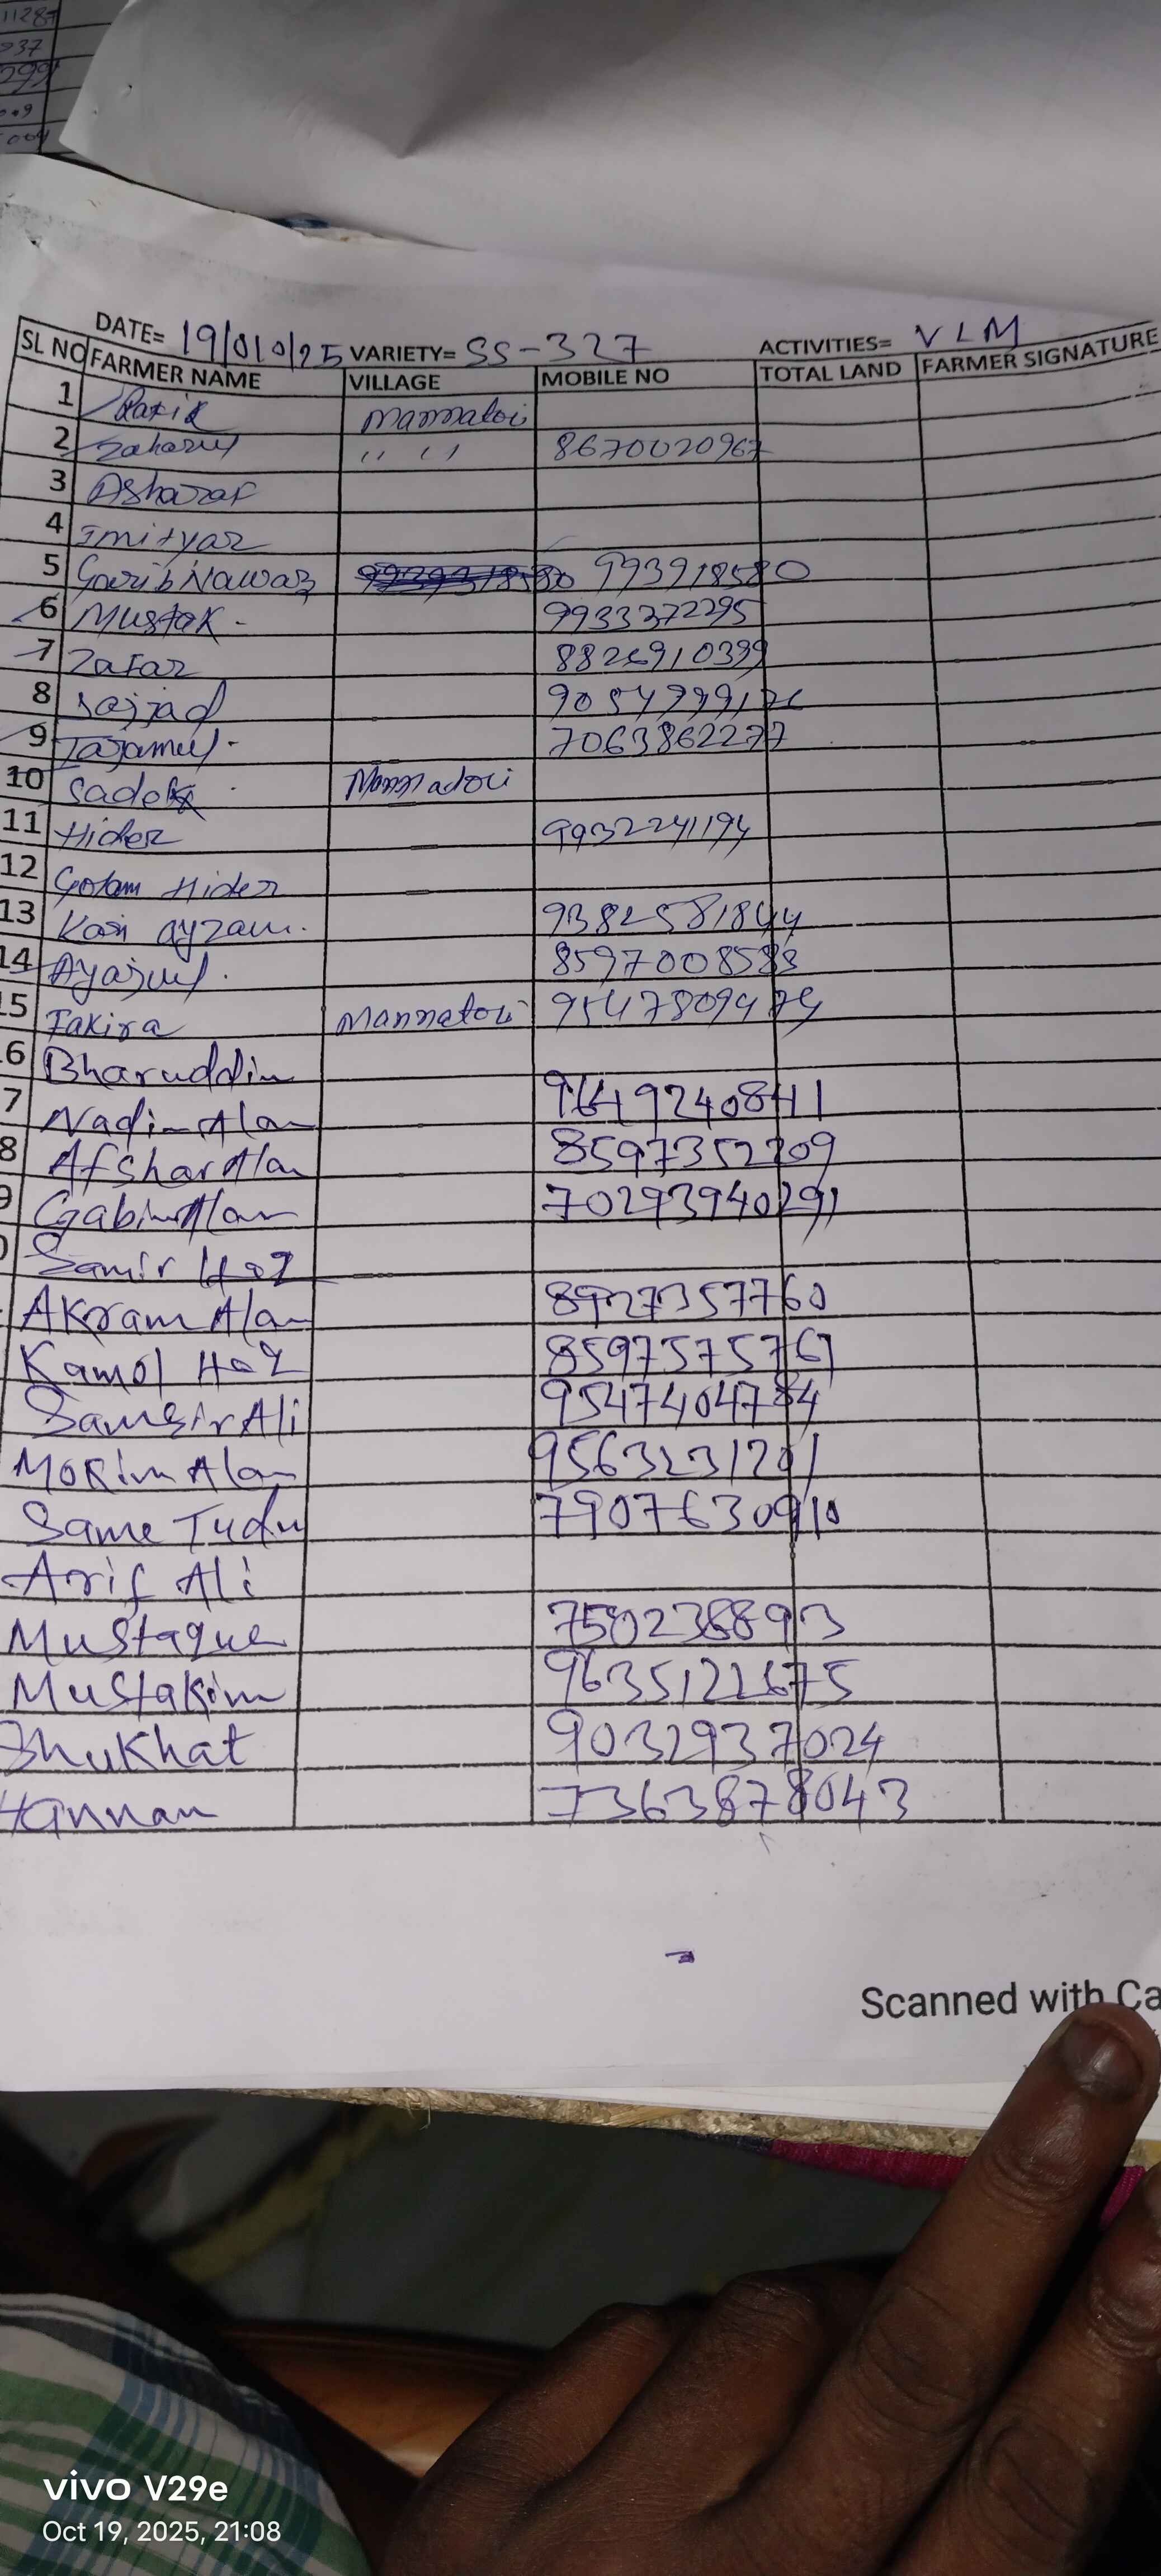 1128
037
299
009
004
DATE= 19/010/25 VARIETY= SS-327 ACTIVITIES= VLM
SL NO FARMER NAME VILLAGE MOBILE NO TOTAL LAND FARMER SIGNATURE
1 Rafik Mannatoli
2 Zaharul " " 8670020967
3 Asharaf
4 Imityaz
5 Garib Nawaz 993918580
6 Mustak - 9933372295
7 Zafar 8826910399
8 Sajjad 9054999176
9 Tajamul - 7063862277
10 Sadek Mannadoli
11 Hider 9932241194
12 Golam Hider
13 Kasi ayzam. 9382581844
14 Ayajul. 8597008588
15 Fakira Mannatoli 9547809474
6 Bharuddin
7 Nadim Alam 9649240841
8 Afshar Alam 8597352209
9 Gabin Alam 70293940291
0 Samir Hoq
Akram Alam 8927357760
Kamol Hoq 8597575767
Samsir Ali 9547404784
Mokim Alam 9563231201
Same Tudu 7907630910
Arif Ali
Mustaque 7502388913
Mustakim 9635122675
Shukhat 9032937024
Hannan 7363878043
Scanned with Ca
vivo V29e
Oct 19, 2025, 21:08